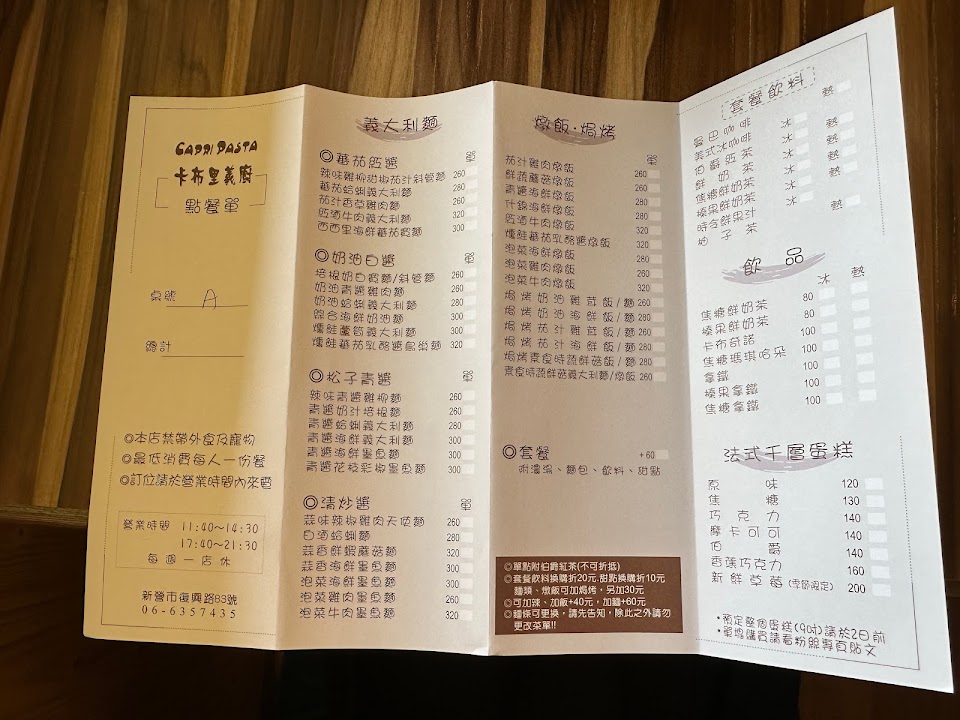 CAPRI PASTA
卡布里義廚
點餐單
桌號 A
總計
◎本店禁帶外食及寵物
◎最低消費每人一份餐
◎訂位請於營業時間內來電
營業時間 11:40~14:30
17:40~21:30
每週一店休
新營市復興路83號
06-6357435
義大利麵
◎蕃茄紅醬 單
辣味雞柳甜椒茄汁斜管麵 260
蕃茄蛤蜊義大利麵 280
茄汁香草雞肉麵 260
紅酒牛肉義大利麵 320
西西里海鮮蕃茄寬麵 300
◎奶油白醬 單
培根奶白寬麵/斜管麵 260
奶油青醬雞肉麵 260
奶油蛤蜊義大利麵 280
綜合海鮮奶油麵 300
燻鮭蘆筍義大利麵 300
燻鮭蕃茄乳酪醬鳥巢麵 320
◎松子青醬 單
辣味青醬雞柳麵 260
青醬奶汁培根麵 260
青醬蛤蜊義大利麵 280
青醬海鮮義大利麵 300
青醬海鮮墨魚麵 300
青醬花枝彩椒墨魚麵 300
◎清炒醬 單
蒜味辣椒雞肉天使麵 260
白酒蛤蜊麵 280
蒜香鮮蝦蘑菇麵 320
蒜香海鮮墨魚麵 300
泡菜海鮮墨魚麵 300
泡菜雞肉墨魚麵 280
泡菜牛肉墨魚麵 320
燉飯·焗烤
單
茄汁雞肉燉飯 260
鮮蔬蘑菇燉飯 260
青醬海鮮燉飯 280
什錦海鮮燉飯 280
紅酒牛肉燉飯 320
燻鮭蕃茄乳酪醬燉飯 320
泡菜海鮮燉飯 280
泡菜雞肉燉飯 260
泡菜牛肉燉飯 320
焗烤奶油雞茸飯/麵 260
焗烤奶油海鮮飯/麵 280
焗烤茄汁雞茸飯/麵 260
焗烤茄汁海鮮飯/麵 280
焗烤素食時蔬鮮菇飯/麵 280
素食時蔬鮮菇義大利麵/燉飯 260
◎套餐 +60
附濃湯、麵包、飲料、甜點
◎單點附伯爵紅茶(不可折抵)
◎套餐飲料換購折20元.甜點換購折10元
麵類、燉飯可加焗烤，另加30元
◎可加辣、加飯+40元，加麵+60元
◎麵條可更換，請先告知，除此之外請勿
更改菜單!!
套餐飲料
熱
曼巴咖啡 冰 熱
美式冰咖啡 冰
伯爵紅茶 冰 熱
鮮奶茶 冰 熱
焦糖鮮奶茶 冰 熱
榛果鮮奶茶 冰
時令鮮果汁 冰
柚子茶 熱
飲品
冰 熱
焦糖鮮奶茶 80
榛果鮮奶茶 80
卡布奇諾 100
焦糖瑪琪哈朵 100
拿鐵 100
榛果拿鐵 100
焦糖拿鐵 100
法式千層蛋糕
原味 120
焦糖 130
巧克力 140
摩卡可可 140
伯爵 140
香蕉巧克力 160
新鮮草莓(季節限定) 200
·預定整個蛋糕(9吋)請於2日前
·單獨購買請看粉絲專頁貼文